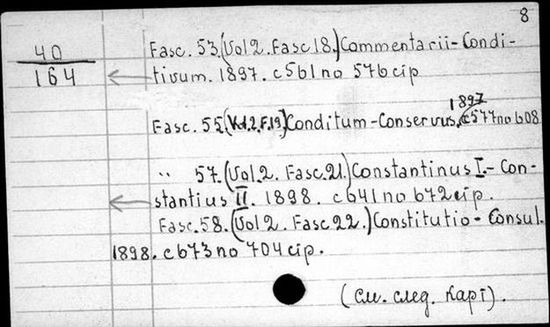 8
40
164
Fasc. 53. (Vol 2. Fasc 18.) Commentarii-Condi-
tivum. 1897. c 561 по 576 cip
1897
Fasc. 55. (Vol. 2. F. 19.) Conditum-Conservus. c 577 по 608
" 57. (Vol. 2. Fasc. 21.) Constantinus I.-Con-
stantius II. 1898. c 641 по 672 cip.
Fasc. 58. (Vol 2. Fasc. 22.) Constitutio-Consul.
1898. c 673 по 704 cip.
(См. след. карт).